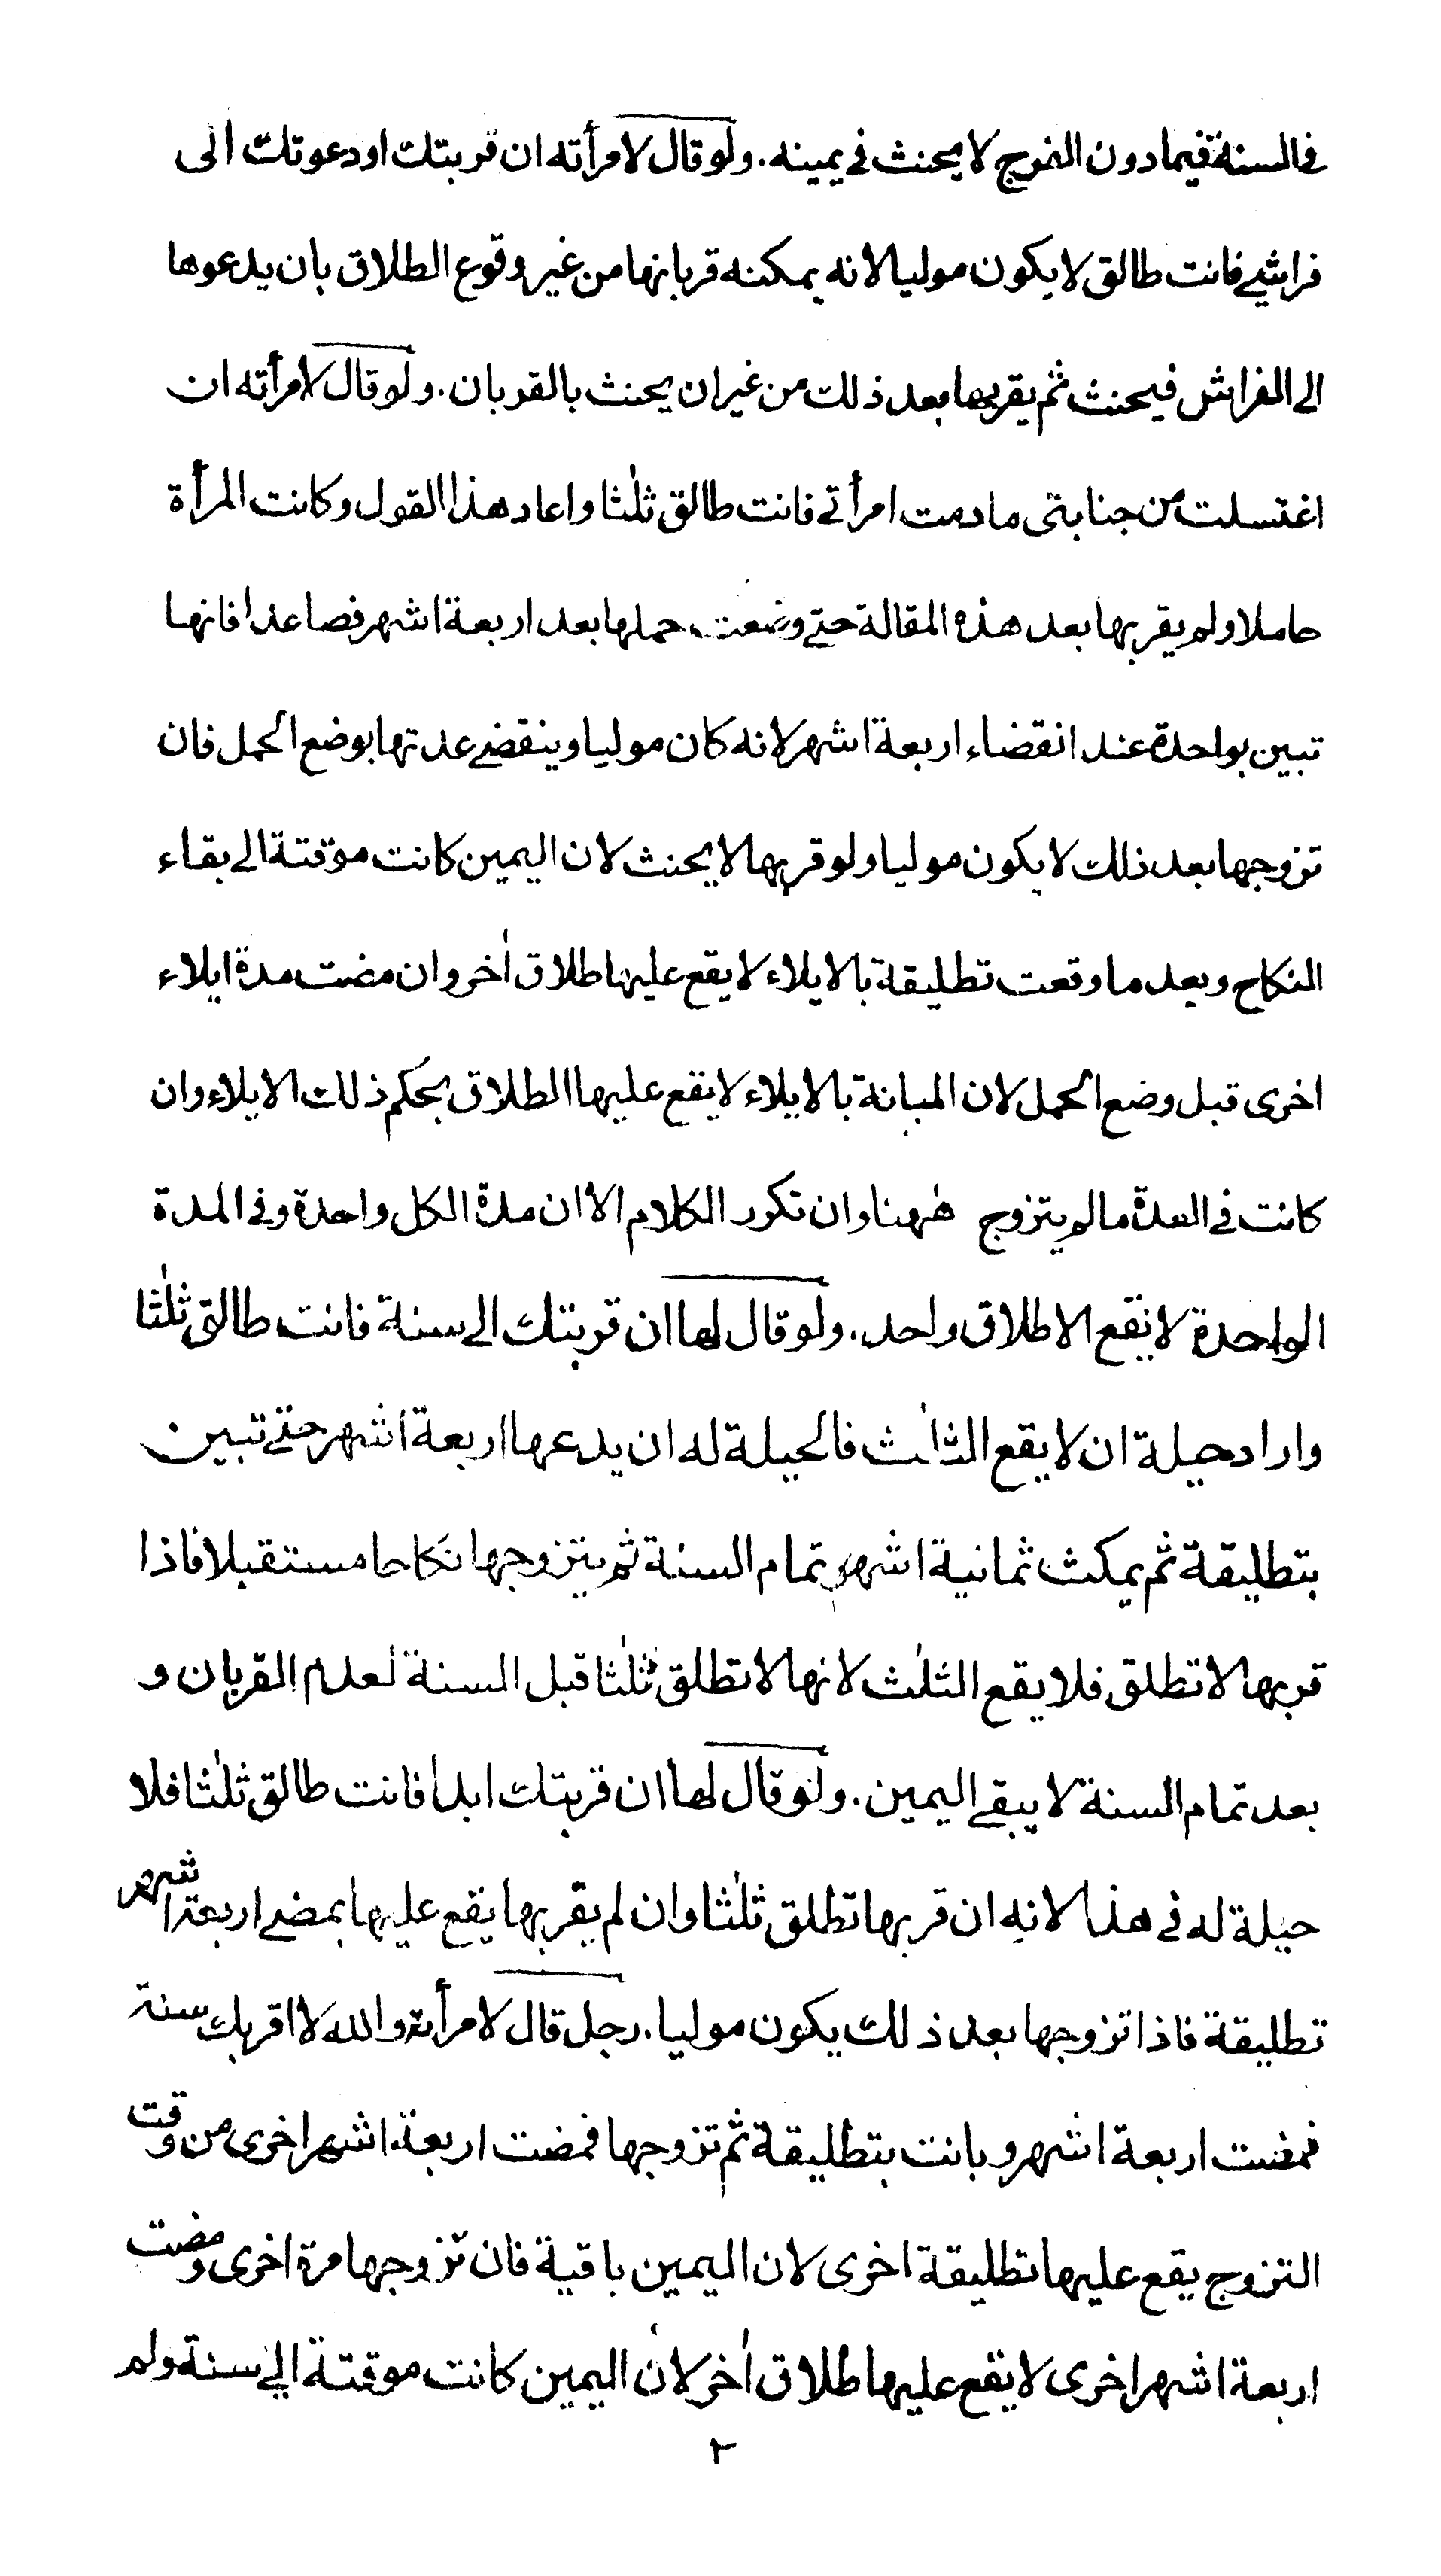 فى السنة فيما دون الفرج لا يحنث فى يمينه . ولو قال لامرأته ان قربتك او دعوتك الى
فراشى فانت طالق لا يكون موليا لانه يمكنه قربانها من غير وقوع الطلاق بان يدعوها
الى الفراش فيحنث ثم يقربها بعد ذلك من غير ان يحنث بالقربان . ولو قال لامرأته ان
اغتسلت من جنابتى ما دمت امرأتى فانت طالق ثلٰثا واعاد هذا القول وكانت المرأة
حاملا ولم يقربها بعد هذه المقالة حتى وضعت حملها بعد اربعة اشهر فصاعدا فانها
تبين بواحدة عند انقضاء اربعة اشهر لانه كان موليا وينقضى عدتها بوضع الحمل فان
تزوجها بعد ذلك لا يكون موليا ولو قربها لا يحنث لان اليمين كانت موقتة الى بقاء
النكاح وبعد ما وقعت تطليقة بالايلاء لا يقع عليها طلاق اٰخر وان مضت مدة ايلاء
اخرى قبل وضع الحمل لان المبانة بالايلاء لا يقع عليها الطلاق بحكم ذلك الايلاء وان
كانت فى العدة ما لم يتزوج هٰهنا وان تكرر الكلام الا ان مدة الكل واحدة وفى المدة
الواحدة لا يقع الا طلاق واحد . ولو قال لها ان قربتك الى سنة فانت طالق ثلٰثا
واراد حيلة ان لا يقع الثلٰث فالحيلة له ان يدعها اربعة اشهر حتى تبين
بتطليقة ثم يمكث ثمانية اشهر تمام السنة ثم يتزوجها نكاحا مستقبلا فاذا
قربها لا تطلق فلا يقع الثلٰث لانها لا تطلق ثلٰثا قبل السنة لعدم القربان و
بعد تمام السنة لا يبقى اليمين . ولو قال لها ان قربتك ابدا فانت طالق ثلٰثا فلا
حيلة له فى هذا لانه ان قربها تطلق ثلٰثا وان لم يقربها يقع عليها بمضى اربعة اشهر
تطليقة فاذا تزوجها بعد ذلك يكون موليا . رجل قال لامرأته والله لا اقربك سنة
فمضت اربعة اشهر وبانت بتطليقة ثم تزوجها فمضت اربعة اشهر اخرى من وقت
التزوج يقع عليها تطليقة اخرى لان اليمين باقية فان تزوجها مرة اخرى ومضت
اربعة اشهر اخرى لا يقع عليها طلاق اٰخر لان اليمين كانت موقتة الى سنة ولم
٢